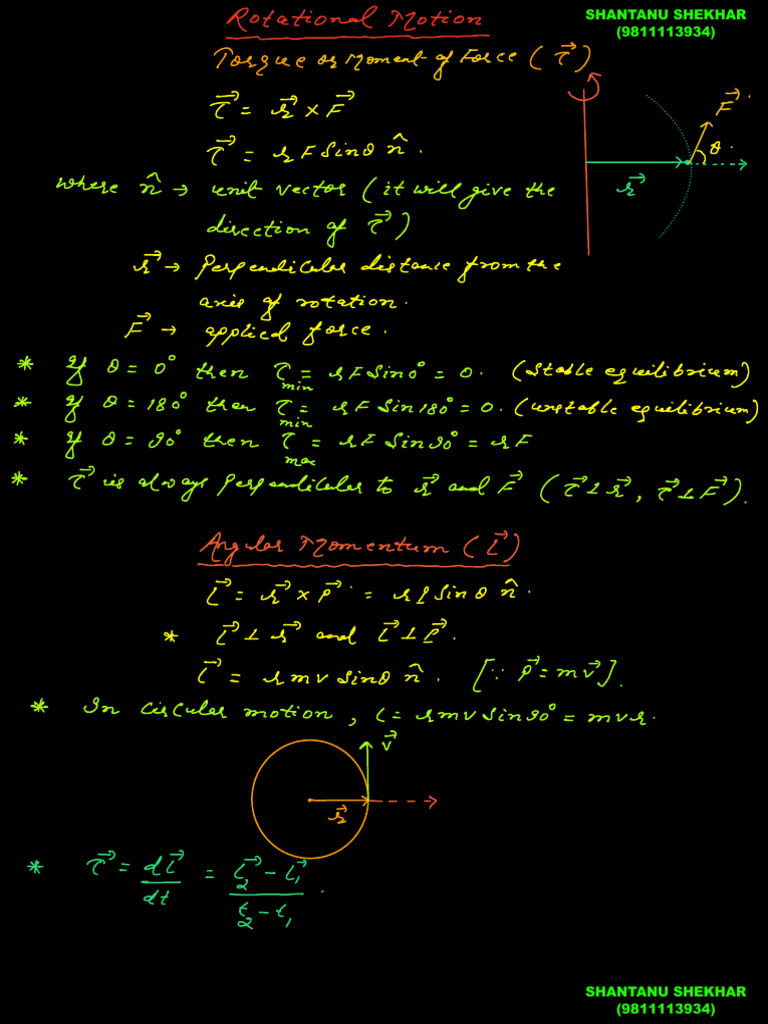 Rotational Motion
SHANTANU SHEKHAR
(9811113934)
Torque or Moment of Force (τ⃗)
τ⃗ = r⃗ × F⃗
τ⃗ = rF Sinθ n̂.
where n̂ → unit vector (it will give the
direction of τ⃗)
r⃗ → perpendicular distance from the
axis of rotation.
F⃗ → applied force.
F⃗
θ
r⃗
* If θ = 0° then τmin = rF Sin0° = 0. (stable equilibrium)
* If θ = 180° then τmin = rF Sin180° = 0. (unstable equilibrium)
* If θ = 90° then τmax = rF Sin90° = rF
* τ⃗ is always perpendicular to r⃗ and F⃗ (τ⃗ ⊥ r⃗, τ⃗ ⊥ F⃗).
Angular Momentum (L⃗)
L⃗ = r⃗ × P⃗ = rP Sinθ n̂.
* L⃗ ⊥ r⃗ and L⃗ ⊥ P⃗.
L⃗ = rmv sinθ n̂. [∵ P⃗ = mv⃗].
* In circular motion, L = rmv Sin90° = mvr.
v⃗
r⃗
* τ⃗ = dL⃗/dt = (L⃗2 - L⃗1)/(t2 - t1).
SHANTANU SHEKHAR
(9811113934)